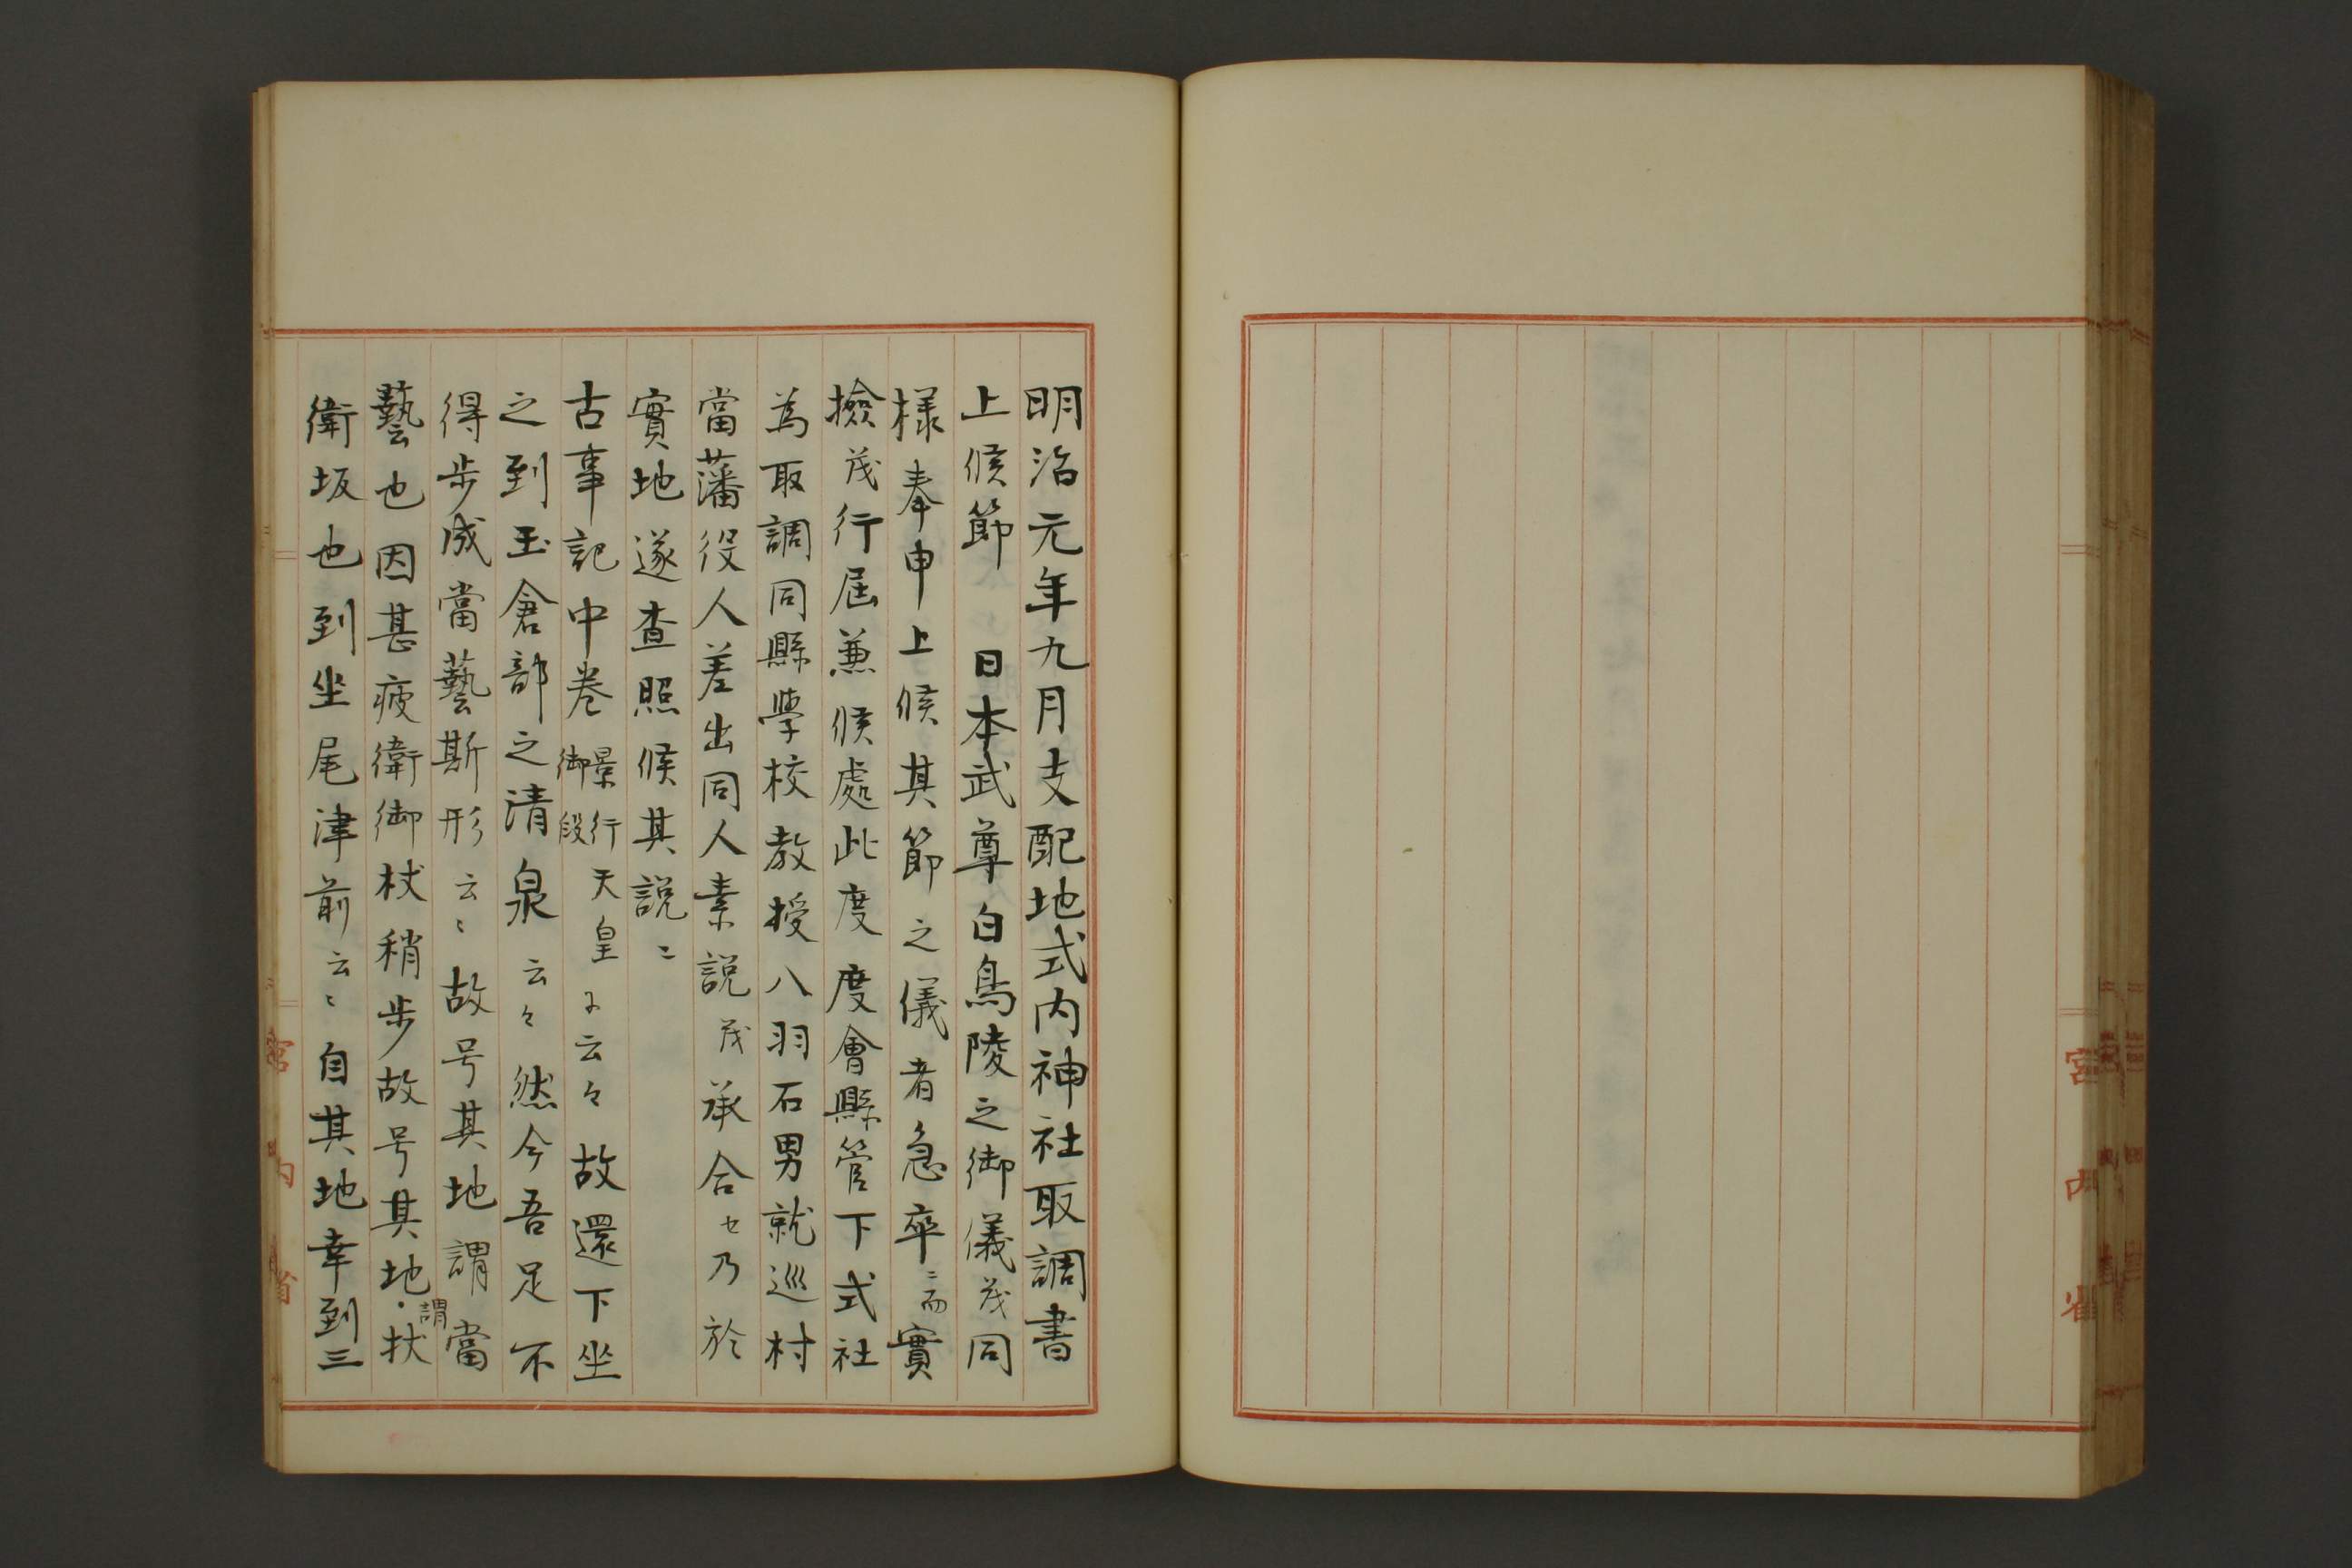 明治元年九月支配地式内神社取調書
上候節　日本武尊白鳥陵之御儀茂同
様奉申上候其節之儀者急卒ニ而實
撿茂行届兼候處此度度會縣管下式社
為取調同縣學校教授八羽石男就巡村
當藩役人差出同人素説茂承合セ乃於
實地遂査照候其説ニ
古事記中卷景行天皇御段ニ云々故還下坐
之到玉倉部之清泉云々然今吾足不
得歩成當藝斯形云々故号其地謂當
藝也因甚疲衝御杖稍歩故号其地・謂扶
衝坂也到坐尾津前云々自其地幸到三
宮内省